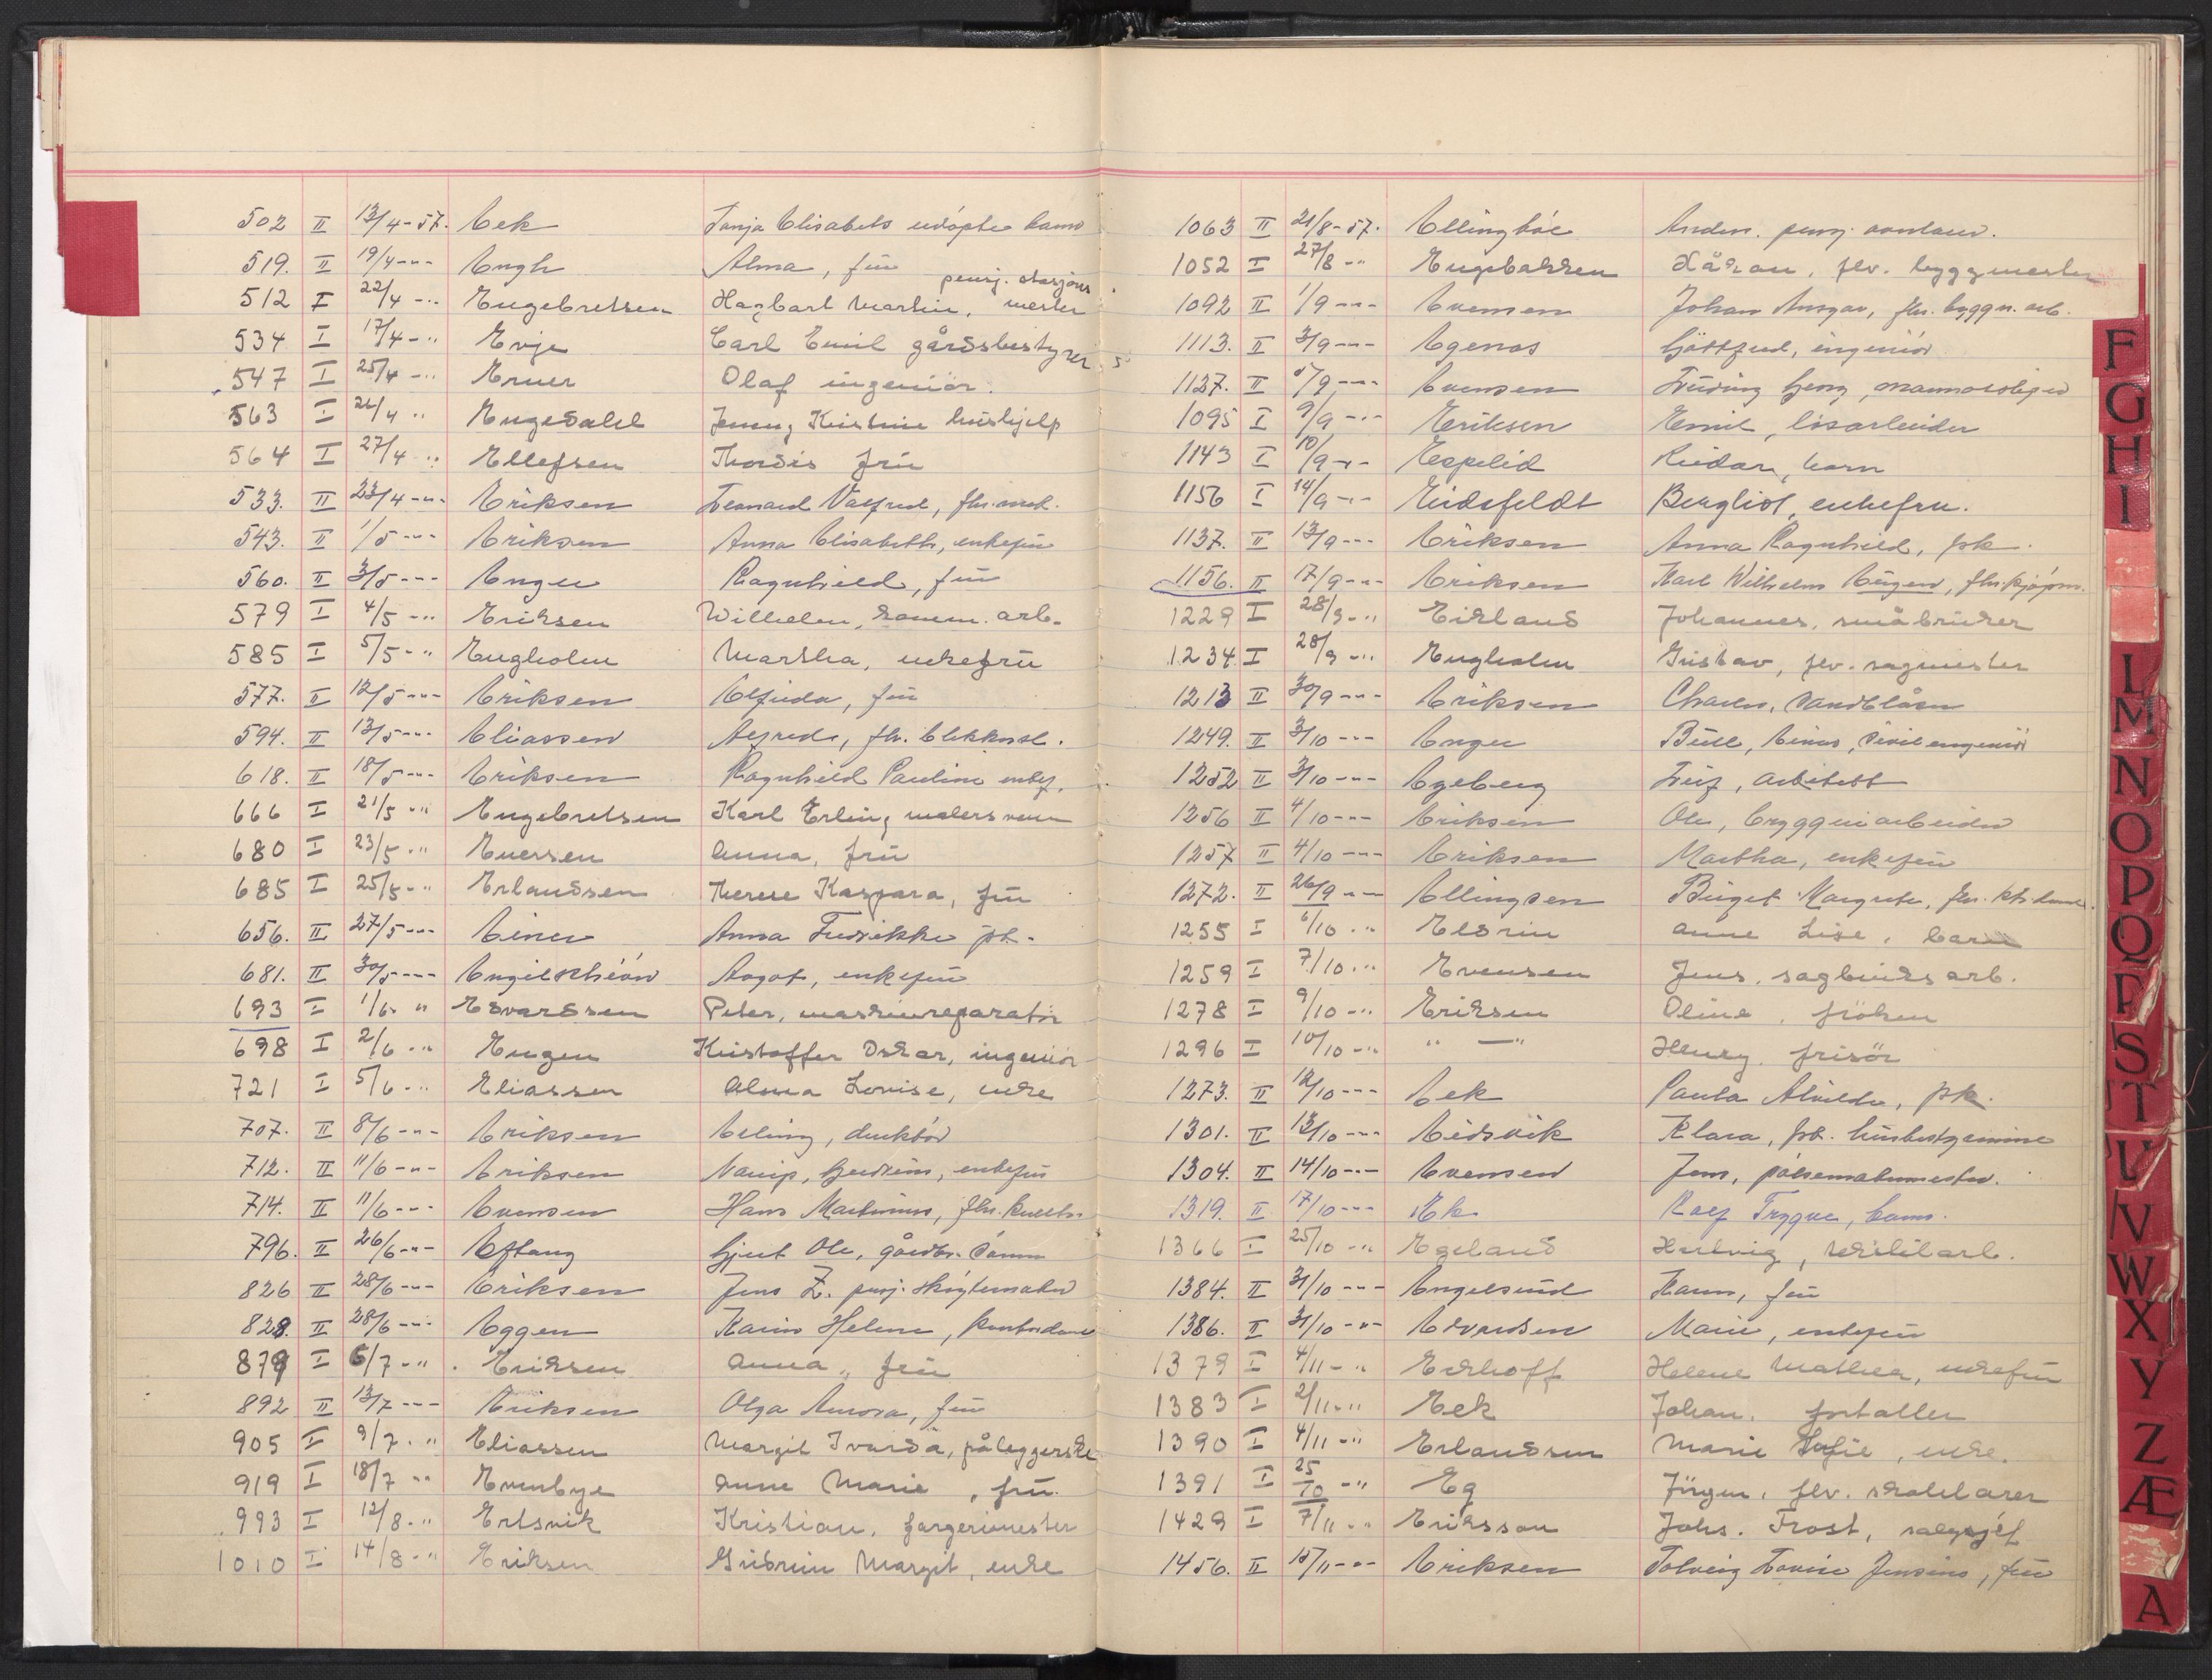 502 II 13/4-57. Eek Tanja Elisabeth udöpte barn
519. II 19/4-"- Engh Alma, frü
512 I 22/4 -" Engebretsen Hagbart Martin, pensj. stasjons mester
534 I 17/4 -" Evje Carl Emil gårdsbestyrer
547 I 25/4 -" Olaf ingeniör.
563 I 26/4 " Engedahl Jenny Kristine hüshjelp
564 I 27/4 " Ellefsen Thordis frü
533. II 23/4-"- Eriksen Leonard Valfred,
543. II 1/5 -"- Eriksen Anna Elisabeth, enkefrü
560. II 3/5-"- Enger Ragnhild, frü
579 I 4/5 -" Eriksen Wilhelm, komm. arb.
585 I 5/5-" Engholm Martha, enkefrü
577. II 12/5-"- Eriksen Elfrida, frü
594. II 13/5-"- Eliassen Alfred,
618. II 18/5-"- Eriksen Ragnhild Pauline enkef.
666 I 21/5 -" Engebretsen Karl Erling malersvenn
680 I 23/5 -" Eversen Anna, frü
685 I 25/5-" Erlandsen Therese Kaspara, frü
656. II 27/5-"- Einer Anna Fredrikke pk.
681. II 30/5-"- Engelschiön Aagot, enkefrü
693 I 1/6- " Edvardsen Peter, maskinreparatör
698 I 2/6 -" Engen Kristoffer Oskar, ingeniör
721 I 5/6 -" Eliassen Alma Lovise, enke
707. II 8/6-"- Eriksen Erling, direktör
712. II 11/6-"- Eriksen enkefrü
714. II 11/6-"- Evensen Hans Martinius,
796. II 26/6-"- Eftang Gjert Ole,
826 II 28/6-"- Eriksen Jens Z. pensj. skögtemaker
828. II 28/6-"- Eggen Karin Helene, kontordame
879 I 6/7-" Eriksen Anna, frü
892 II 13/7-"- Eriksen Olga Aurora, frü
905 I 9/7 -" Eliassen Margit Ivarda, påleggerske
919 I 18/7 -" Evenbye Anne Marie, frü.
993 I 12/8-" Ertsvik Kristian, fargerimester
1010 I 14/8-" Eriksen Güdrün Margit, enke
1063 II 21/8-57. Ellingböe Anders. pensj.
1052 I 27/8 -" Engebakken Håkon, flv. byggmester
1092 II 1/9-"- Evensen Johan Ansgar, fhv. byggn. arb.
1113. II 3/9-"- Egenas Gottfred, ingeniör
1137. II 5/9-"- Evensen
1095 I 9/9-"- Eriksen Emil, lösarbeider
1143 I 10/9-"- Espelid Reidar, barn
1156 I 14/9-"- Eidsfeldt Bergliot, enkefru.
1137. II 13/9-"- Eriksen Anna Ragnhild, pk.
1156. II 17/9-"- Eriksen Karl Wilhelm Eugen, fhv. kjöpm.
1229 I 28/9-" Eikland Johannes, småbrüker
1234. I 28/9 -" Engholm Güstav, flv. sagmester
1213 II 30/9-"- Eriksen Charles, sandblåser
1249. II 3/10-"- Enger Büll, Einar, sivilingeniör
1252 II 3/10-"- Egeberg arkitekt
1256 II 4/10-"- Eriksen Ole, bryggeriarbeider
1257 II 4/10-"- Eriksen Martha, enkefrü
1272. II 26/9-"- Ellingsen Birgit Margrete,
1255 I 6/10-" Eldrin Anne Lise, barn
1259 I 7/10-" Evensen Jens, sagbrüks arb.
1278 I 9/10-" Eriksen Oline, fröken
1296 I 10/10-" " — " Henry, frisör
1273. II 12/10-"- Eek Paula Alvilde, pk.
1301. II 13/10-"- Eidsvik Klara, fhv. hüsbestyrerinne
1304. II 14/10-"- Evensen Jens, pölsemakermester.
1319. II 17/10-"- Ek Rolf Trygve, barn.
1366 I 25/10-" Egeland Hartvig, tekstilarb.
1384. II 31/10-"- Engelsund Karen, frü
1386. II 31/10-"- Edvardsen Marie, enkefrü
1379 I 4/11-" Eckhoff Helene Mathea, enkefrü
1383 I 2/11-" Eek Johan. fortaller
1390 I 4/11-" Erlandsen Marie Sofie, enke.
1391 I 25/10 -" Eg Jörgen, flv. skolelærer
1429 I 7/11-" Eriksson Johs. Trost, salgssjef
1456. II 15/11-"- Eriksen Solveig Lovise Jensine, frü
F
G
H
I
L
M
N
O
P
Q
R
S
T
U
V
W
X
Y
Z
Æ
A